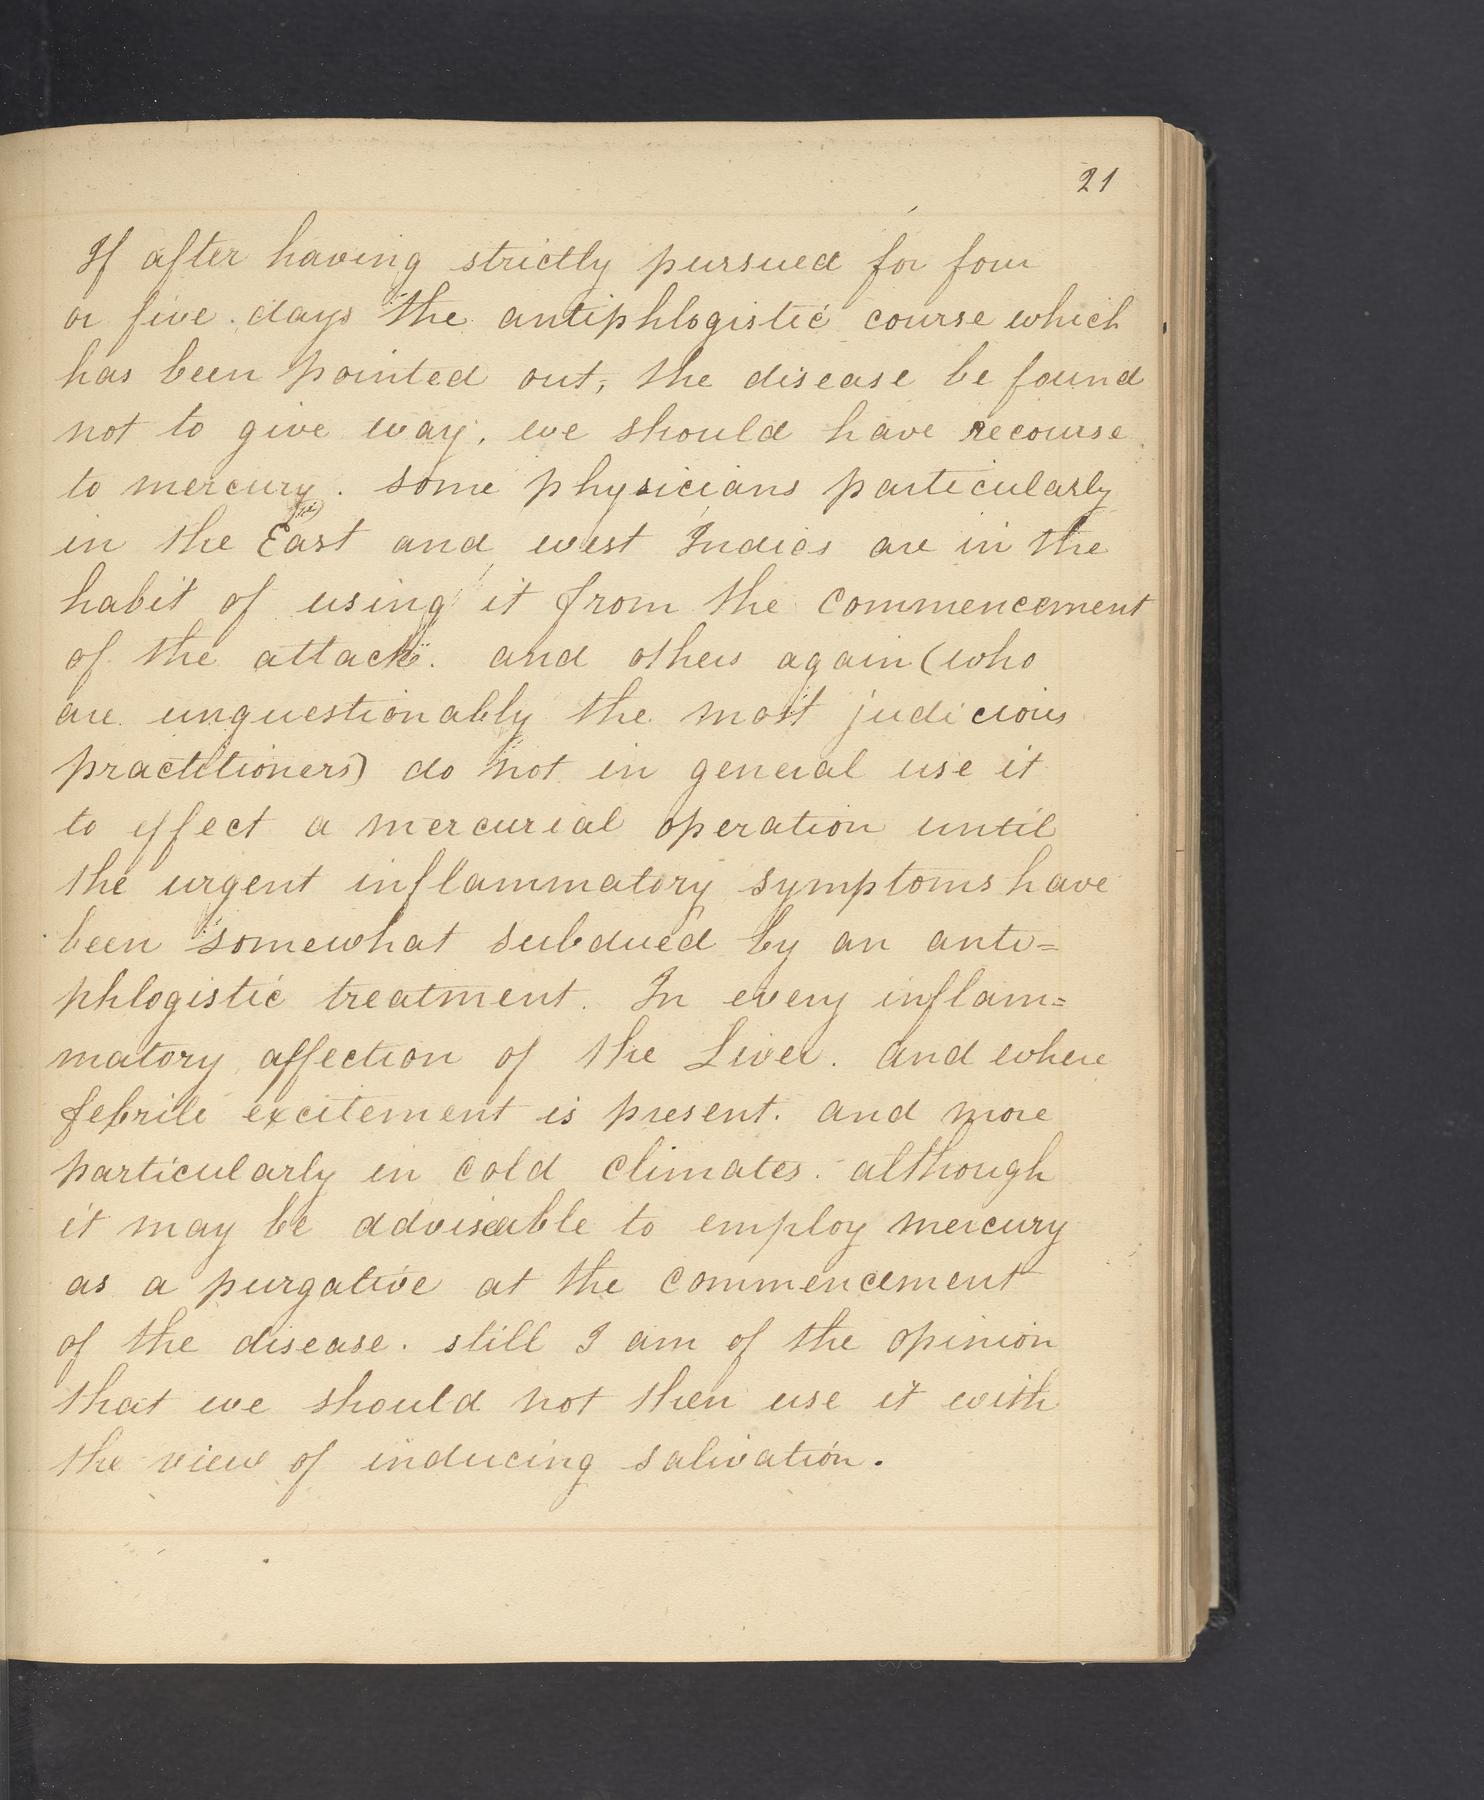 21
If after having strictly pursued for four
or five days the antiphlogistic course which
has been pointed out, the disease be found
not to give way, we should have recourse
to mercury. some physicians particularly
in the East and west Indies are in the
habit of using it from the commencement
of the attack. and others again (who
are unquestionably the most judicious
practitioners) do not in general use it
to effect a mercurial operation until
the urgent inflammatory symptoms have
been somewhat subdued by an anti=
phlogistic treatment. In every inflam=
matory affection of the Liver. and where
febrile excitement is present. and more
particularly in cold climates. although
it may be adviseable to employ mercury
as a purgative at the commencement
of the disease. still I am of the opinion
that we should not then use it with
the view of inducing salivation.